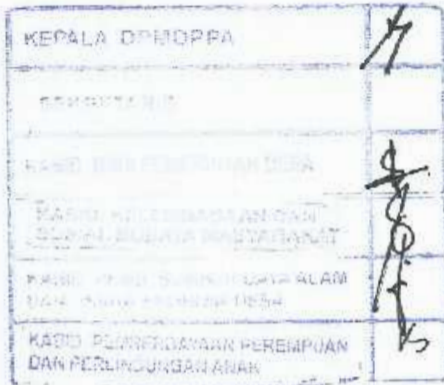 KEPALA DPMDPPA
SEKRETARIS
KABID BINA PEMERINTAHAN DESA
KABID KELEMBAGAAN DAN
SOSIAL BUDAYA MASYARAKAT
KABID ALAM
DAN DESA
KABID PEMBERDAYAAN PEREMPUAN
DAN PERLINDUNGAN ANAK